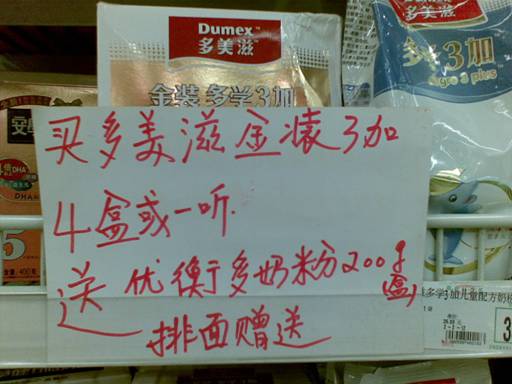 Dumex
多美滋
金装多学3加
多美滋
多学3加
买多美滋金装3加
4盒或一听.
送优衡多奶粉200g(盒)
排面赠送
DHA
5
多学3加儿童配方奶粉
3